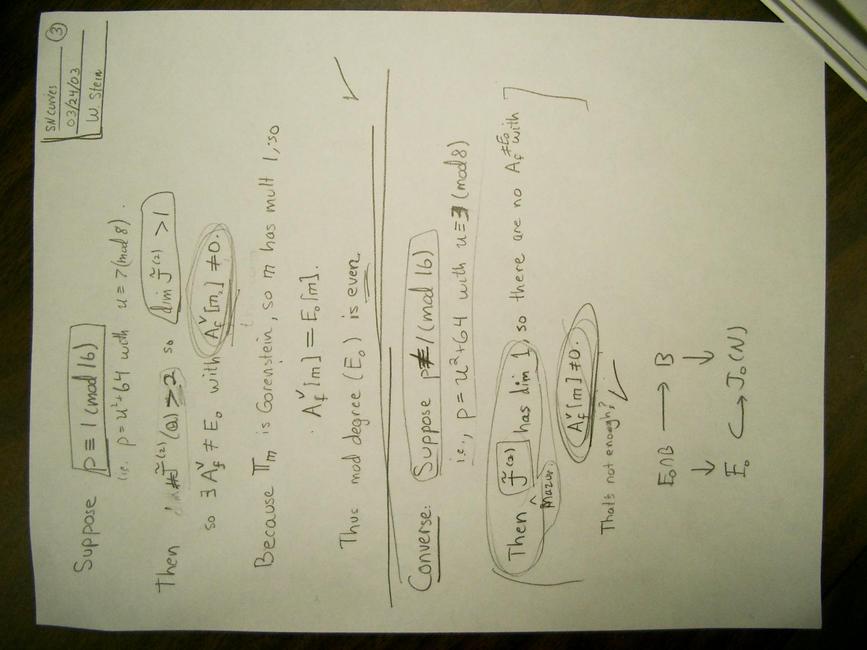 SN curves ③
03/24/03
W. Stein
Suppose p ≡ 1 (mod 16)
i.e. p = u²+64 with u ≡ 7 (mod 8).
Then # J̃⁽²⁾(Q) > 2 so dim J̃⁽²⁾ > 1
so ∃ A_f^∨ ≠ E₀ with A_f^∨[m] ≠ 0.
Because 𝕋_m is Gorenstein, so m has mult 1, so
A_f^∨[m] = E₀[m].
Thus mod degree (E₀) is even ✓
Converse: Suppose p ≢ 1 (mod 16)
i.e., p = u²+64 with u ≡ 3 (mod 8)
[Then J̃⁽²⁾ has dim 1, so there are no A_f^∨ ≠ E₀ with]
Mazur
A_f^∨[m] ≠ 0.
That's not enough? ✓
E₀∩B → B
↓ ↓
E₀ ↪ J₀(N)